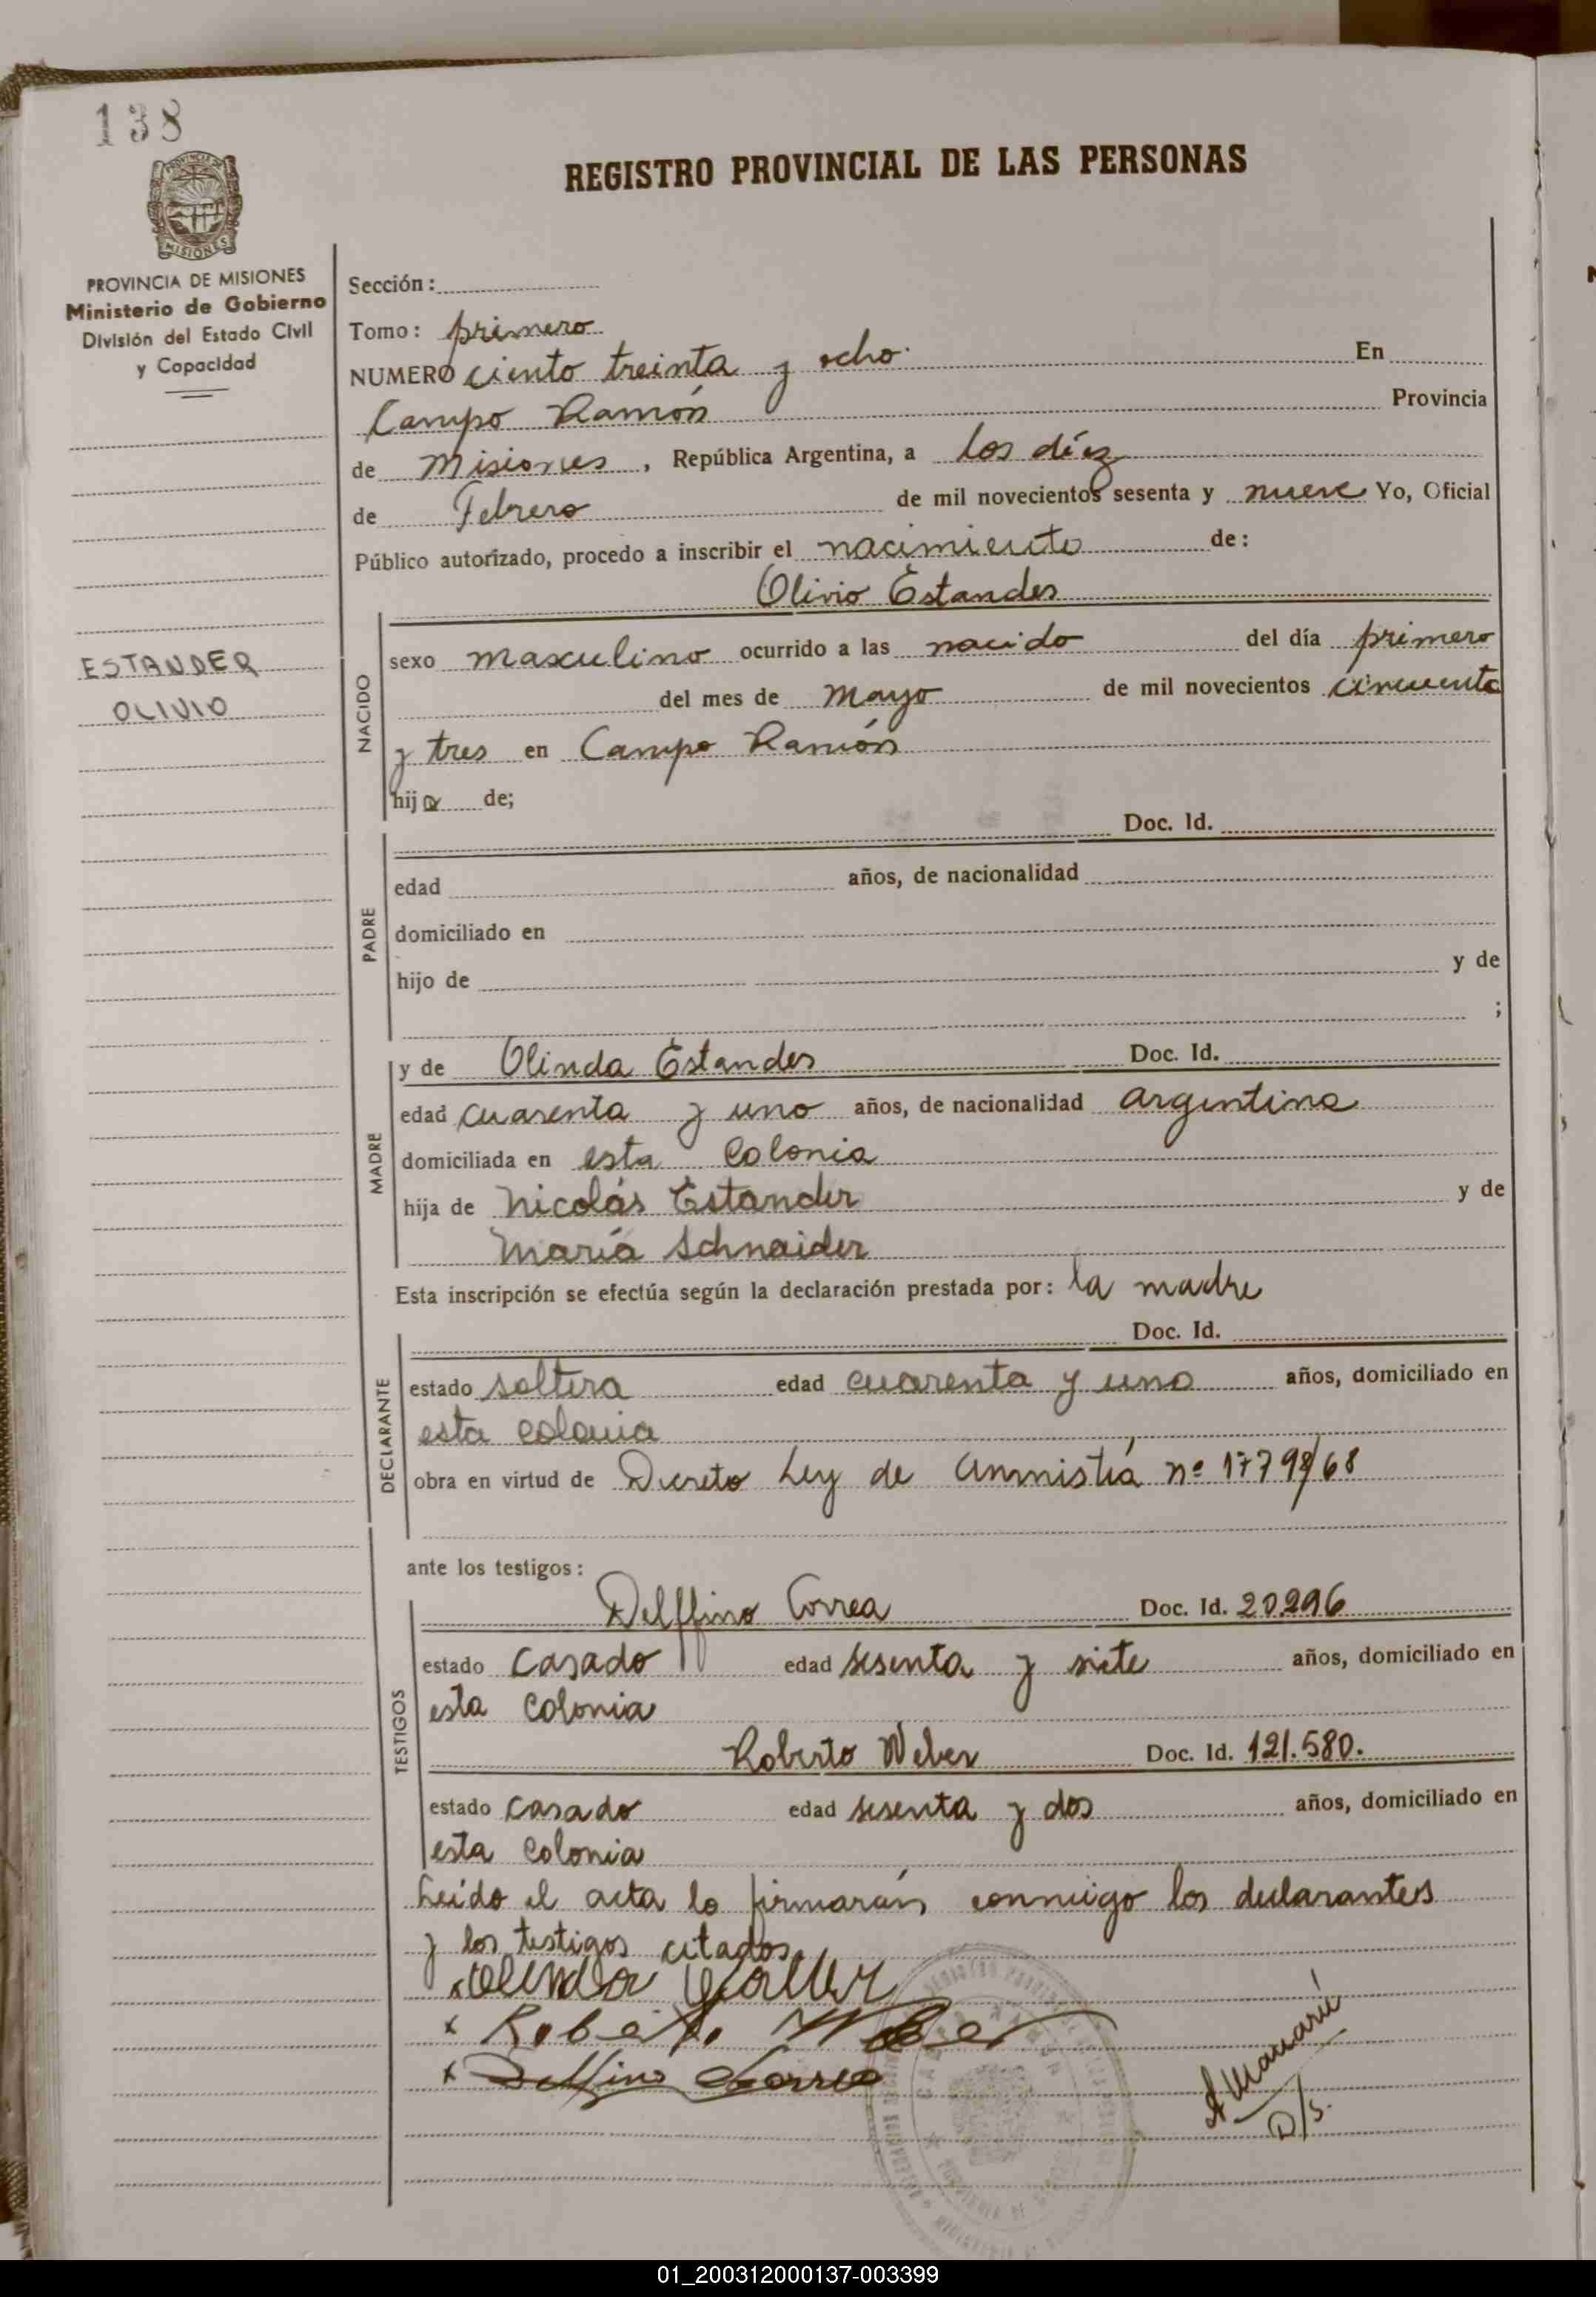 138
PROVINCIA DE
MISIONES
PROVINCIA DE MISIONES
Ministerio de Gobierno
División del Estado Civil
y Capacidad
ESTANDER
OLIVIO
REGISTRO PROVINCIAL DE LAS PERSONAS
Sección:
Tomo: primero
NUMERO ciento treinta y ocho. En
Campo Ramón Provincia
de Misiones, República Argentina, a los díez
de Febrero de mil novecientos sesenta y nueve Yo, Oficial
Público autorizado, procedo a inscribir el nacimiento de:
Olivio Estander
NACIDO
sexo masculino ocurrido a las nacido del día primero
del mes de Mayo de mil novecientos cincuenta
y tres en Campo Ramón
hijo de;
PADRE
Doc. Id.
edad años, de nacionalidad
domiciliado en
hijo de y de
;
MADRE
y de Olinda Estander Doc. Id.
edad cuarenta y uno años, de nacionalidad argentina
domiciliada en esta Colonia
hija de Nicolás Estander y de
María Schnaider
Esta inscripción se efectúa según la declaración prestada por: la madre
DECLARANTE
Doc. Id.
estado soltera edad cuarenta y uno años, domiciliado en
esta colonia
obra en virtud de Decreto Ley de Amnistía nº 17798/68
ante los testigos:
TESTIGOS
Delffino Correa Doc. Id. 20.296
estado casado edad sesenta y siete años, domiciliado en
esta colonia
Roberto Weber Doc. Id. 121.580.
estado casado edad sesenta y dos años, domiciliado en
esta colonia
Leído el acta lo firmarán conmigo los declarantes
y los testigos citados.
x Roberto Weber
x Delfino Correa
D/S.
CAMPO RAMON
01_200312000137-003399